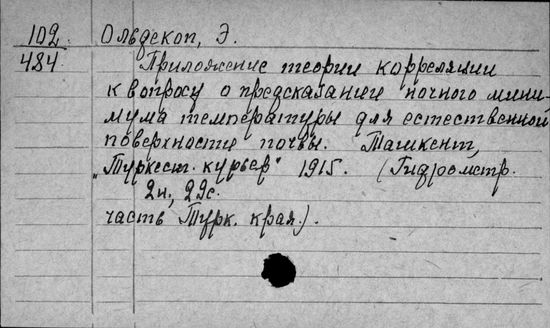 102 Ольдекоп, Э.
484 Приложение теории корреляции
к вопросу о предсказании ночного мини-
мума температуры для естественной
поверхности почвы. Ташкент,
„Туркест. курьер" 1915. (Гидрометр.
2н, 29с.
часть Турк. края.).